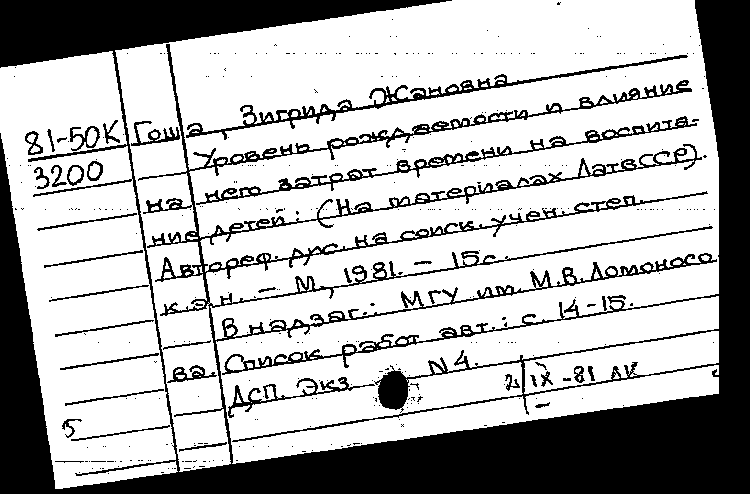 81-50К
3200
Гоша, Зигрида Жановна
Уровень рождаемости и влияние
на него затрат времени на воспита-
ние детей: (На материалах ЛатвССР).
Автореф. дис. на соиск. учен. степ.
к.э.н. – М., 1981. – 15с.
В надзаг.: МГУ им. М.В. Ломоносо
ва. Список работ авт.: с. 14-15.
ДСП. Экз N4.
IX-81 ЛК
5